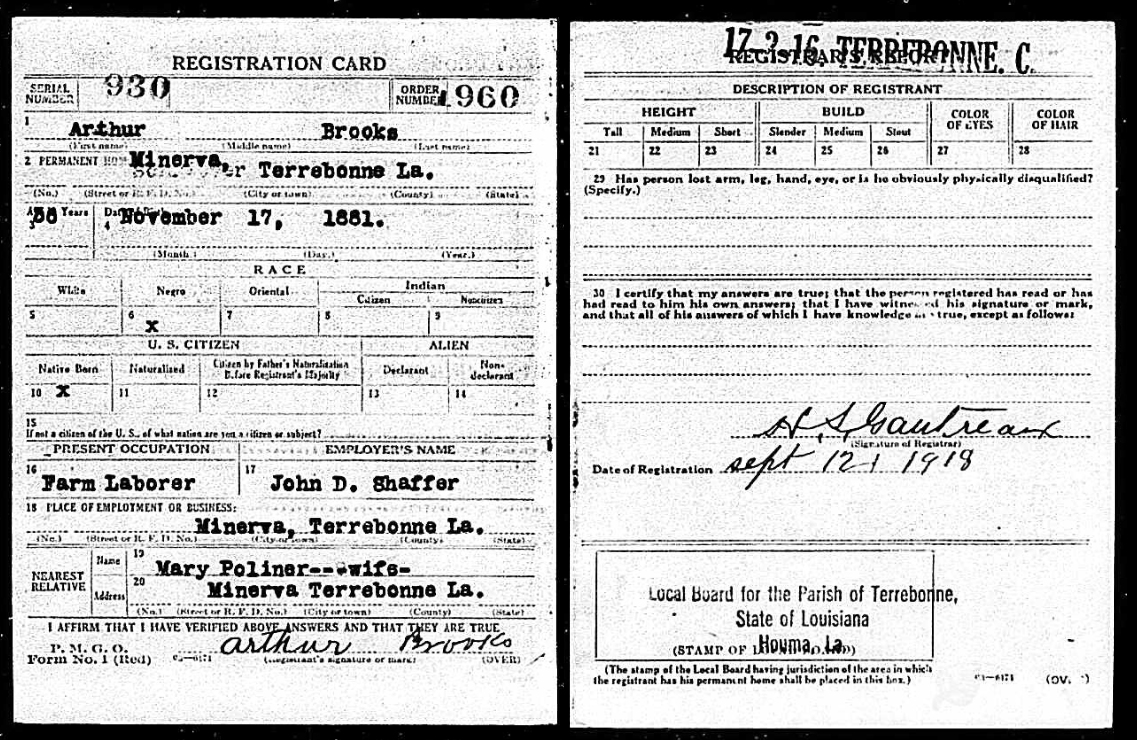 REGISTRATION CARD
SERIAL NUMBER 930 ORDER NUMBER 960
1 Arthur Brooks
(First name) (Middle name) (Last name)
2 PERMANENT HOME Minerva, Terrebonne La.
(No.) (Street or R. F. D. No.) (City or town) (County) (State)
Years 3 4 November 17, 1881.
(Month) (Day) (Year)
RACE
White Negro Oriental Indian
Citizen Noncitizen
5 6 X 7 8 9
U. S. CITIZEN ALIEN
Native Born Naturalized Citizen by Father's Naturalization Before Registrant's Majority Declarant Non-declarant
10 X 11 12 13 14
15
If not a citizen of the U. S., of what nation are you a citizen or subject?
PRESENT OCCUPATION EMPLOYER'S NAME
16 Farm Laborer 17 John D. Shaffer
18 PLACE OF EMPLOYMENT OR BUSINESS:
Minerva, Terrebonne La.
(No.) (Street or R. F. D. No.) (City or town) (County) (State)
NEAREST RELATIVE Name 19 Mary Poliner---wife-
Address 20 Minerva Terrebonne La.
(No.) (Street or R. F. D. No.) (City or town) (County) (State)
I AFFIRM THAT I HAVE VERIFIED ABOVE ANSWERS AND THAT THEY ARE TRUE
P. M. G. O.
Form No. 1 (Red) arthur Brooks
(Registrant's signature or mark) (OVER)
17-2-16 TERREBONNE. C.
REGISTRAR'S REPORT
DESCRIPTION OF REGISTRANT
HEIGHT BUILD COLOR OF EYES COLOR OF HAIR
Tall Medium Short Slender Medium Stout
21 22 23 24 25 26 27 28
29 Has person lost arm, leg, hand, eye, or is he obviously physically disqualified?
(Specify.)
30 I certify that my answers are true; that the person registered has read or has
had read to him his own answers; that I have witnessed his signature or mark,
and that all of his answers of which I have knowledge are true, except as follows:
H. S. Gautreaux
(Signature of Registrar)
Date of Registration sept 12 1918
Local Board for the Parish of Terrebonne,
State of Louisiana
Houma, La.
(STAMP OF LOCAL BOARD)
(The stamp of the Local Board having jurisdiction of the area in which
the registrant has his permanent home shall be placed in this box.)